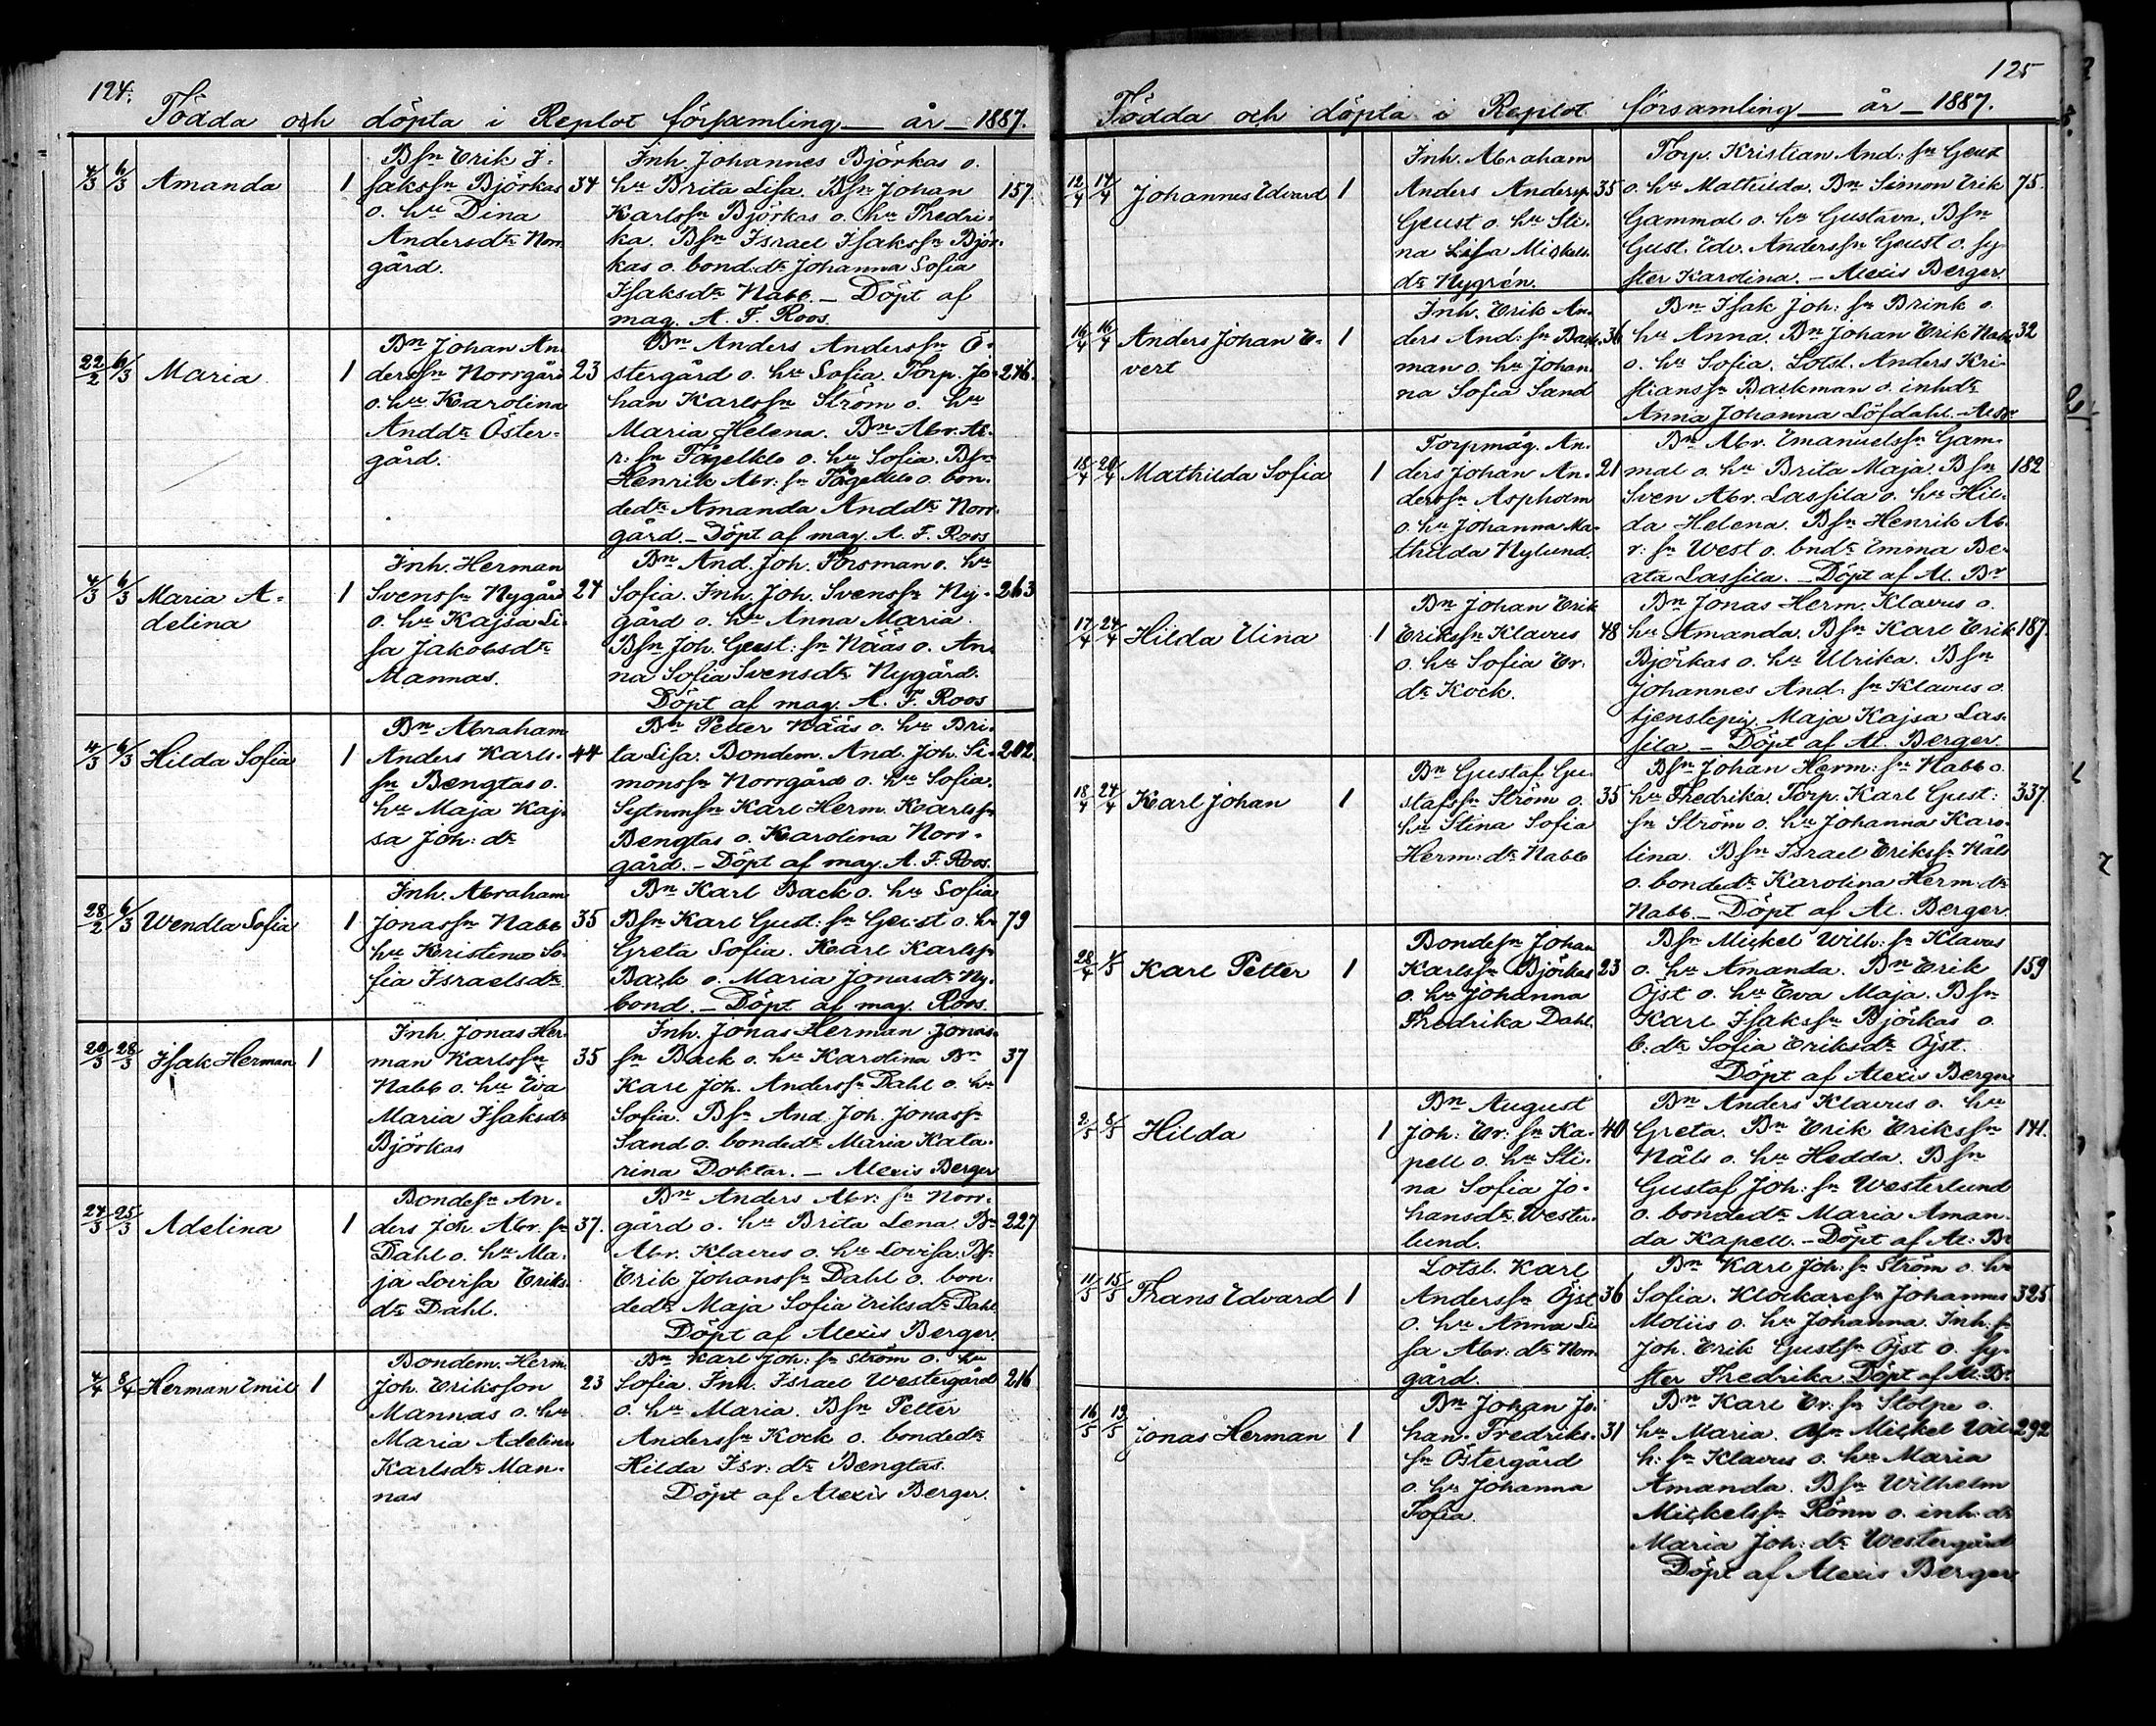 124.
Födda och döpta i Replot församling — år — 1887.
4/3 6/3 Amanda 1
Bsn Erik I-
saksson Björkas 34
o. hu Dina
Andersdr Norr
gård.
Inh. Johannes Björkas o.
hu Brita Lisa. Bsn Johan 157.
Karlssn Björkas o. hu Fredri-
ka. Bsn Israel Isakssn Björ-
kas o. bond:dr Johanna Sofia
Isaksdr Nabb. — Döpt af
mag. A. F. Roos.
22/2 6/3 Maria 1
Bn Johan An-
derssn Norrgård 23
o. hu Karolina
Anddr Öster-
gård.
Bn Anders Anderssn Ö-
stergård o. hu Sofia. Torp. Jo- 246.
han Karlssn Ström o. hu
Maria Helena. Bn Abr. Ab-
r: sn Fågelklo o. hu Sofia. Bsn
Henrik Abr: sn Fågelklo o. bon-
dedr Amanda Anddr Norr-
gård. — Döpt af mag. A. F. Roos
4/3 6/3 Maria A-
delina 1
Inh. Herman
Svenssn Nygård 24
o. hu Kajsa Li-
sa Jakobsdr
Mannas.
Bn And. Joh. Forsman o. hu
Sofia. Inh. Joh. Svenssn Ny- 263
gård o. hu Anna Maria.
Bsn Joh. Gust: sn Nääs o. An-
na Sofia Svensdr Nygård.
Döpt af mag. A. F. Roos
4/3 6/3 Hilda Sofia 1
Bn Abraham
Anders Karls- 44
sn Bengtas o.
hu Maja Kaj-
sa Joh: dr
Bn Petter Nääs o. hu Bri-
ta Lisa. Bondem. And. Joh. Si- 202.
monssn Norrgård o. hu Sofia.
Sytnmsn Karl Herm. Karlssn
Bengtas o. Karolina Norr-
gård. — Döpt af mag. A. F. Roos.
28/2 6/3 Wendla Sofia 1
Inh. Abraham
Jonassn Nabb 35
hu Kristina So-
fia Israelsdr
Bn Karl Back o. hu Sofia
Bsn Karl Gust: sn Geust o. hu 79
Greta Sofia. Karl Karlssn
Back o. Maria Jonasdr Ny-
bond. — Döpt af mag. Roos.
20/3 28/3 Isak Herman 1
Inh. Jonas Her-
man Karlssn 35
Nabb o. hu Eva
Maria Isaksdr
Björkas
Inh. Jonas Herman Jonas-
sn Back o. hu Karolina Bn 37
Karl Joh. Anderssn Dahl o. hu
Sofia. Bsn And. Joh. Jonassn
Sand o. bondedr Maria Kata-
rina Doktar. — Alexis Berger
24/3 25/3 Adelina 1
Bondesn An-
ders Joh. Abr. sn 37.
Dahl o. hu Ma-
ja Lovisa Eriks-
dr Dahl.
Bn Anders Abr: sn Norr-
gård o. hu Brita Lena. Bn 227
Abr. Klavus o. hu Lovisa. Bsn
Erik Johanssn Dahl o. bon-
dedr Maja Sofia Eriksdr Dahl
Döpt af Alexis Berger.
4/4 8/4 Herman Emil 1
Bondem. Herm.
Joh. Eriksson 23
Mannas o. hu
Maria Adelina
Karlsdr Man-
nas
Bn Karl Joh: sn Ström o. hu
Sofia. Inh. Israel Westergård 216
o. hu Maria. Bsn Petter
Anderssn Kock o. bondedr
Hilda Isr: dr Bengtas.
Döpt af Alexis Berger.
125
Födda och döpta i Replot församling — år — 1887.
12/4 14/4 Johannes Edvard 1
Inh. Abraham
Anders Anderssn 35
Geust o. hu Sti-
na Lisa Mickels-
dr Nygrén.
Torp. Kristian And: sn Geust
o. hu Mathilda. Bn Simon Erik 75.
Gammal o. hu Gustava. Bsn
Gust. Edv. Anderssn Geust o. sy-
ster Karolina. — Alexis Berger.
16/4 16/4 Anders Johan E-
vert 1
Inh. Erik An-
ders And: sn Back- 36
man o. hu Johan-
na Sofia Sand
Bn Isak Joh: sn Brink o.
hu Anna. Bn Johan Erik Nabb 32
o. hu Sofia. Lotsl. Anders Kri-
stianssn Backman o. inhdr
Anna Johanna Löfdahl. —
18/4 20/4 Mathilda Sofia 1
Torpmåg. An-
ders Johan An- 21
derssn Aspholm
o. hu Johanna Ma-
thilda Nylund.
Bn Abr. Emanuelssn Gam-
mal o. hu Brita Maja. Bsn 182
Sven Abr. Lassila o. hu Hil-
da Helena. Bsn Henrik Ab-
r: sn West o. bndr Emma Be-
ata Lassila. — Döpt af Al. Br
17/4 24/4 Hilda Elina 1
Bn Johan Erik
Erikssn Klavus 48
o. hu Sofia Er.
dr Kock.
Bn Jonas Herm. Klavus o.
hu Amanda. Bsn Karl Erik 187.
Björkas o. hu Ulrika. Bsn
Johannes And: sn Klavus o.
tjenstepig. Maja Kajsa Las-
sila — Döpt af Al. Berger.
18/4 24/4 Karl Johan 1
Bn Gustaf Gu-
stafssn Ström o. 35
hu Stina Sofia
Herm: dr Nabb
Bsn Johan Herm: sn Nabb o.
hu Fredrika. Torp. Karl Gust: 337.
sn Ström o. hu Johanna Karo-
lina. Bsn Israel Erikssn Nåls
o. bondedr Karolina Herm. dr
Nabb. — Döpt af Al. Berger.
28/4 4/5 Karl Petter 1
Bondesn Johan
Karlssn Björkas 23
o. hu Johanna
Fredrika Dahl.
Bsn Mickel Wilh: sn Klavus
o. hu Amanda. Bn Erik 159
Öjst o. hu Eva Maja. Bsn
Karl Isakssn Björkas o.
b: dr Sofia Eriksdr Öjst.
Döpt af Alexis Berger
2/5 8/5 Hilda 1
Bn August
Joh: Er: sn Ka- 40
pell o. hu Sti-
na Sofia Jo-
hansdr Wester-
lund.
Bn Anders Klavus o. hu
Greta. Bn Erik Erikssn 141.
Nåls o. hu Hedda. Bsn
Gustaf Joh: sn Westerlund
o. bondedr Maria Aman-
da Kapell. — Döpt af Al: Br
11/5 15/5 Frans Edvard 1
Lotsl. Karl
Anderssn Öjst 36
o. hu Anna Li-
sa Abr: dr Norr-
gård.
Bn Karl Joh: sn Ström o. hu
Sofia. Klockaresn Johannes 325
Moliis o. hu Johanna. Inh: sn
Joh. Erik Gustsn Öjst o. sy-
ster Fredrika. Döpt af Al. Br
16/5 19/5 Jonas Herman 1
Bn Johan Jo-
han. Fredriks- 31
sn Östergård
o. hu Johanna
Sofia.
Bn Karl Er: sn Stolpe o.
hu Maria. Bsn Mickel Wil- 292
h: sn Klavus o. hu Maria
Amanda. Bsn Wilhelm
Mickelssn Rönn o. inh: dr
Maria Joh: dr Westergård
Döpt af Alexis Berger